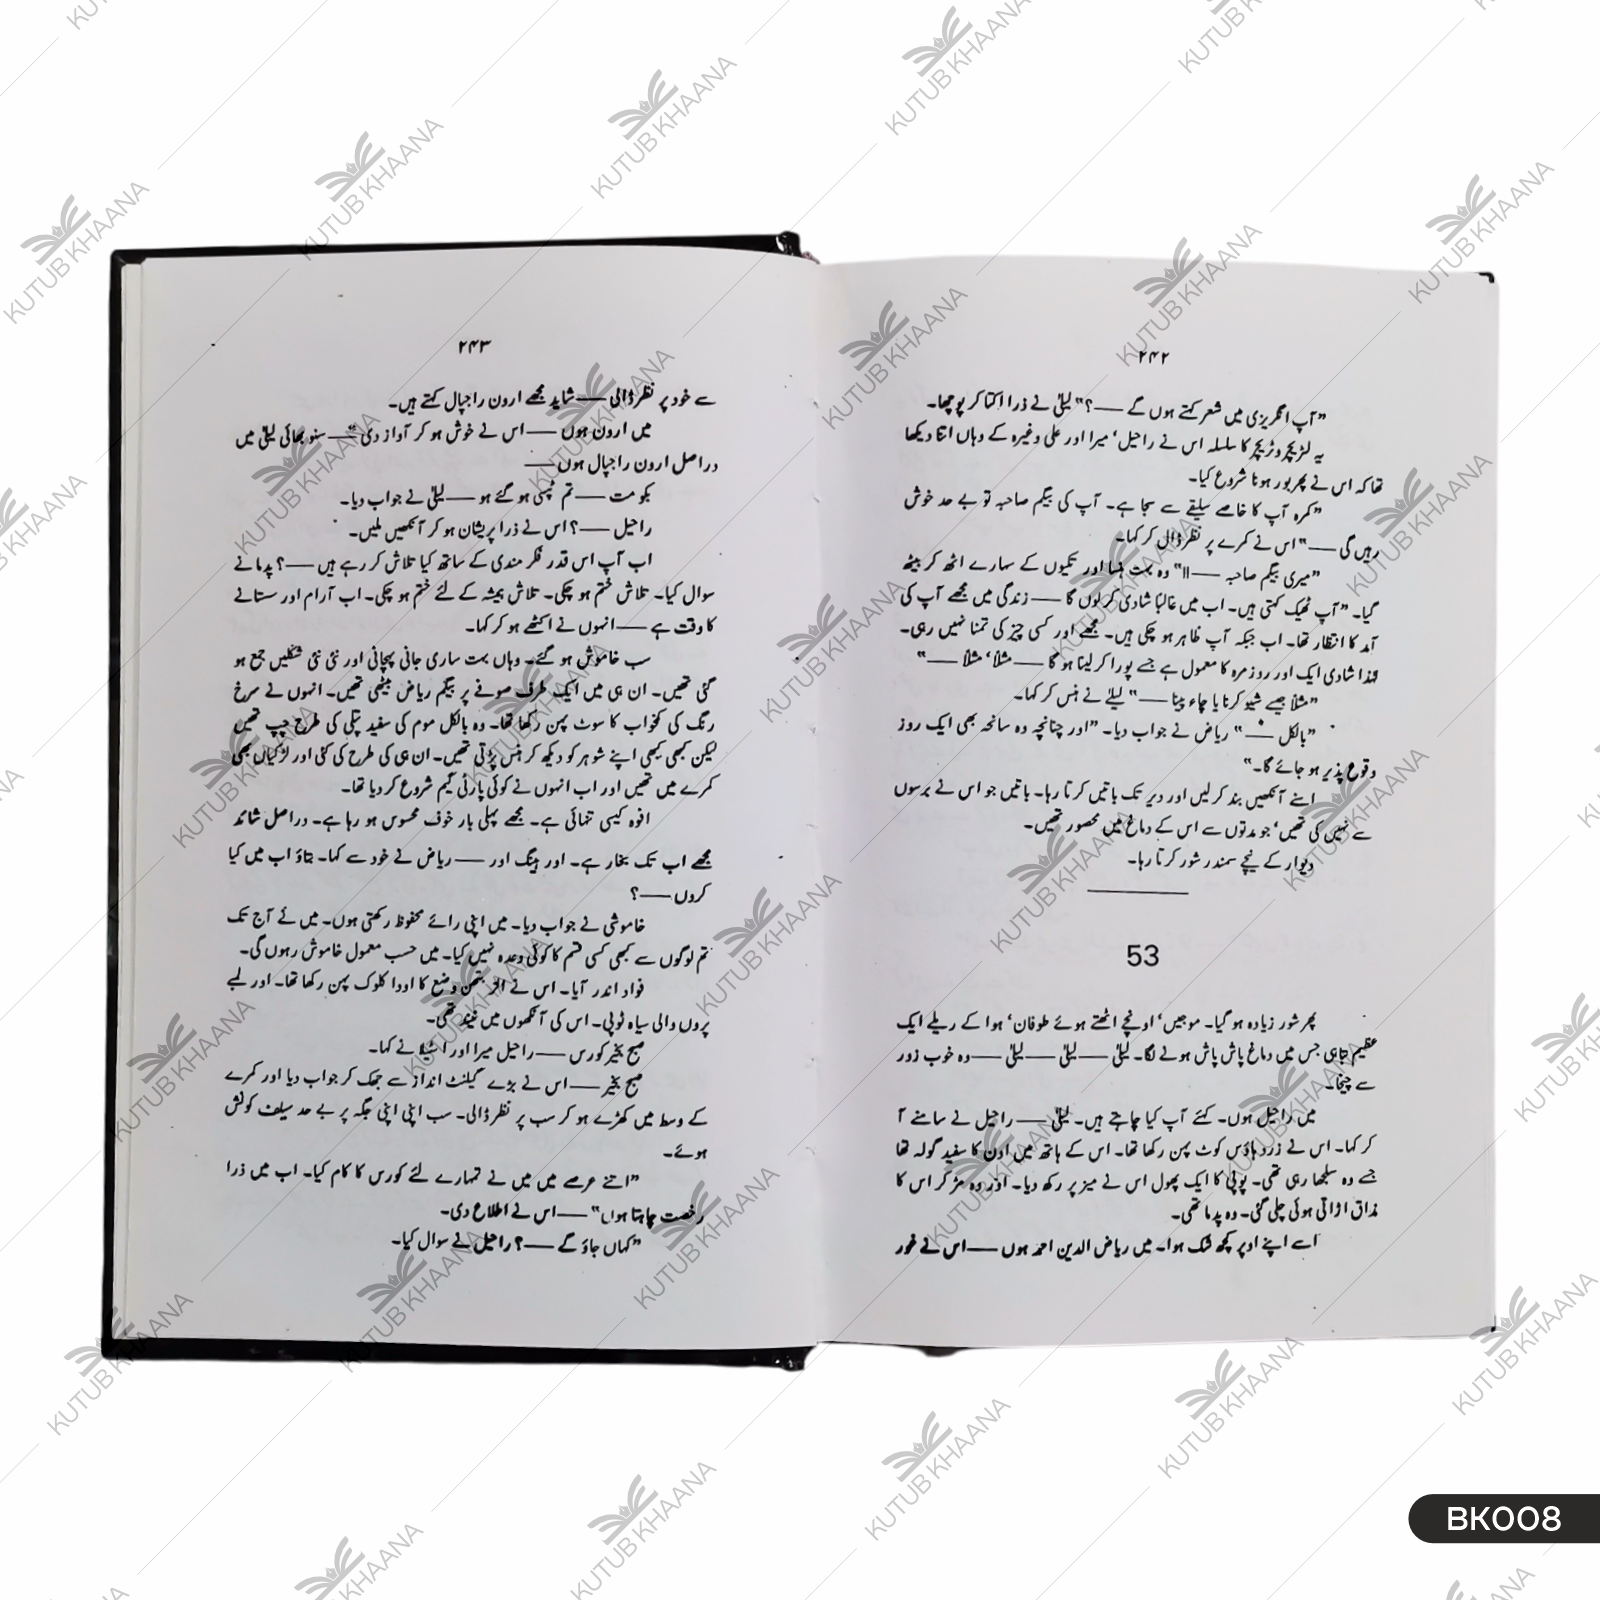 ۲۴۲
”آپ انگریزی میں شعر کہتے ہوں گے ——؟“ لیلیٰ نے ذرا اکتا کر پوچھا۔
یہ لٹریچر وٹریچر کا سلسلہ اس نے راحیل‘ میرا اور علی وغیرہ کے وہاں اتنا دیکھا
تھا کہ اس نے پھر بور ہونا شروع کیا۔
”کمرہ آپ کا خاصے سلیقے سے سجا ہے۔ آپ کی بیگم صاحبہ تو بے حد خوش
رہیں گی ——“ اس نے کمرے پر نظر ڈال کر کہا۔
”میری بیگم صاحبہ ——!!“ وہ بہت ہنسا اور تکیوں کے سہارے اٹھ کر بیٹھ
گیا۔ ”آپ ٹھیک کہتی ہیں۔ اب میں غالباً شادی کر لوں گا —— زندگی میں مجھے آپ کی
آمد کا انتظار تھا۔ اب جبکہ آپ ظاہر ہو چکی ہیں۔ مجھے اور کسی چیز کی تمنا نہیں رہی۔
لہٰذا شادی ایک اور روزمرہ کا معمول ہے جسے پورا کر لینا ہو گا —— مثلاً‘ مثلاً ——“
”مثلاً جیسے شیو کرنا یا چاء پینا ——“ لیلےٰ نے ہنس کر کہا۔
”بالکل ——“ ریاض نے جواب دیا۔ ”اور چنانچہ وہ سانحہ بھی ایک روز
وقوع پذیر ہو جائے گا۔“
اسنے آنکھیں بند کر لیں اور دیر تک باتیں کرتا رہا۔ باتیں جو اس نے برسوں
سے نہیں کی تھیں‘ جو مدتوں سے اس کے دماغ میں محصور تھیں۔
دیوار کے نیچے سمندر شور کرتا رہا۔
53
پھر شور زیادہ ہو گیا۔ موجیں‘ اونچے اٹھتے ہوئے طوفان‘ ہوا کے ریلے ایک
عظیم تباہی جس میں دماغ پاش پاش ہونے لگا۔ لیلیٰ —— لیلیٰ —— لیلیٰ —— وہ خوب زور
سے چیخا۔
میں راحیل ہوں۔ کہئے آپ کیا چاہتے ہیں۔ لیلیٰ —— راحیل نے سامنے آ
کر کہا۔ اس نے زرد ہاؤس کوٹ پہن رکھا تھا۔ اس کے ہاتھ میں اون کا سفید گولہ تھا
جسے وہ سلجھا رہی تھی۔ پوپی کا ایک پھول اس نے میز پر رکھ دیا۔ اور وہ مڑ کر اس کا
مذاق اڑاتی ہوئی چلی گئی۔ وہ پدما تھی۔
اسے اپنے اوپر کچھ شک ہوا۔ میں ریاض الدین احمد ہوں —— اس نے غور
۲۴۳
سے خود پر نظر ڈالی —— شاید مجھے ارون راجپال کہتے ہیں۔
میں ارون ہوں —— اس نے خوش ہو کر آواز دی “—— سنو بھائی لیلیٰ میں
دراصل ارون راجپال ہوں ——
بکو مت —— تم ٹپسی ہو گئے ہو —— لیلیٰ نے جواب دیا۔
راحیل ——؟ اس نے ذرا پریشان ہو کر آنکھیں ملیں۔
اب آپ اس قدر فکر مندی کے ساتھ کیا تلاش کر رہے ہیں ——؟ پدما نے
سوال کیا۔ تلاش ختم ہو چکی۔ تلاش ہمیشہ کے لئے ختم ہو چکی۔ اب آرام اور سستانے
کا وقت ہے —— انہوں نے اکٹھے ہو کر کہا۔
سب خاموش ہو گئے۔ وہاں بہت ساری جانی پہچانی اور نئی نئی شکلیں جمع ہو
گئی تھیں۔ ان ہی میں ایک طرف صوفے پر بیگم ریاض بیٹھی تھیں۔ انہوں نے سرخ
رنگ کی کمخواب کا سوٹ پہن رکھا تھا۔ وہ بالکل موم کی سفید پتلی کی طرح چپ تھیں
لیکن کبھی کبھی اپنے شوہر کو دیکھ کر ہنس پڑتی تھیں۔ ان ہی کی طرح کی کئی اور لڑکیاں بھی
کمرے میں تھیں اور اب انہوں نے کوئی پارٹی گیم شروع کر دیا تھا۔
افوہ کیسی تنہائی ہے۔ مجھے پہلی بار خوف محسوس ہو رہا ہے۔ دراصل شائد
مجھے اب تک بخار ہے۔ اور ہینگ اور —— ریاض نے خود سے کہا۔ بتاؤ اب میں کیا
کروں ——؟
خاموشی نے جواب دیا۔ میں اپنی رائے محفوظ رکھتی ہوں۔ میں نے آج تک
تم لوگوں سے کبھی کسی قسم کا کوئی وعدہ نہیں کیا۔ میں حسب معمول خاموش رہوں گی۔
فواد اندر آیا۔ اس نے وضع کا اودا کلوک پہن رکھا تھا۔ اور لمبے
پروں والی سیاہ ٹوپی۔ اس کی آنکھوں میں نیند تھی۔
صبح بخیر کورس —— راحیل میرا اور اسٹیلا نے کہا۔
صبح بخیر —— اس نے بڑے گیلنٹ انداز سے جھک کر جواب دیا اور کمرے
کے وسط میں کھڑے ہو کر سب پر نظر ڈالی۔ سب اپنی اپنی جگہ پر بے حد سیلف کونشس
ہوئے۔
”اتنے عرصے میں میں نے تمہارے لئے کورس کا کام کیا۔ اب میں ذرا
رخصت چاہتا ہوں“ —— اس نے اطلاع دی۔
”کہاں جاؤ گے ——؟ راحیل نے سوال کیا۔
BK008
KUTUB KHAANA